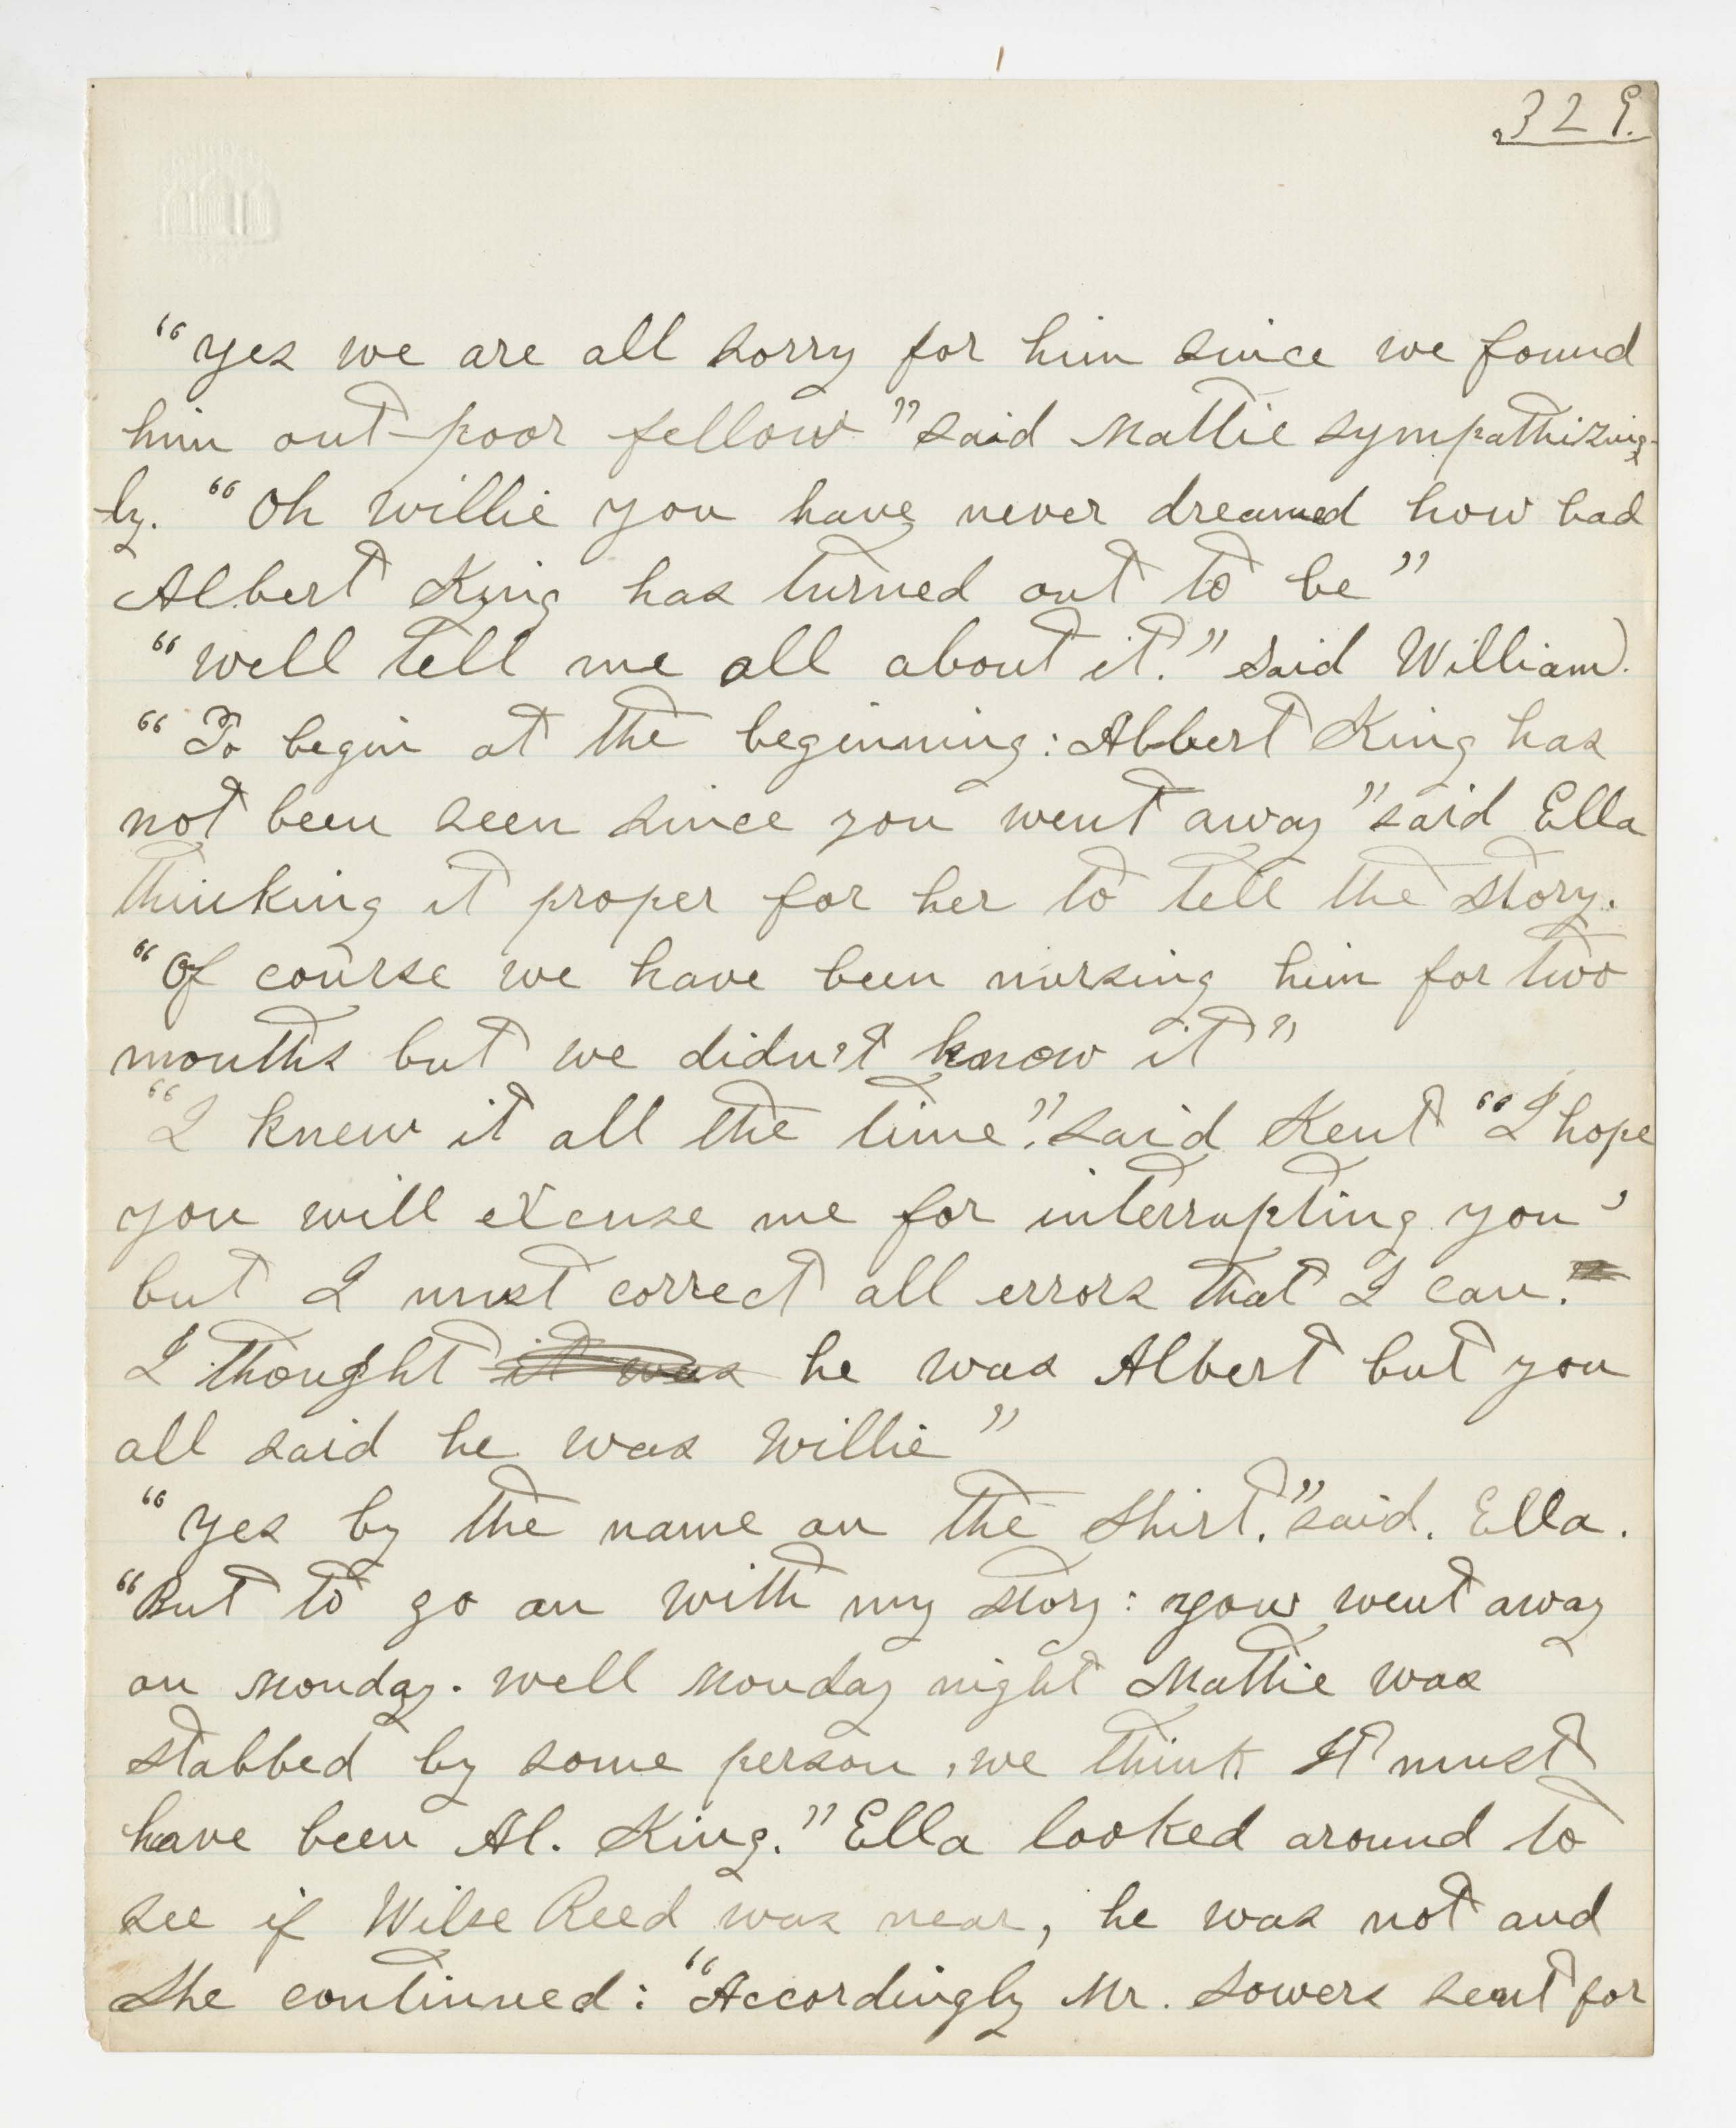 329.
"Yes we are all sorry for him since we found
him out - poor fellow" said Mattie sympathizing-
ly. "Oh Willie you have never dreamed how bad
Albert King has turned out to be"
"Well tell me all about it." said William.
"To begin at the beginning: Albert King has
not been seen since you went away" said Ella
thinking it proper for her to tell the story.
"Of course we have been nursing him for two
months but we didn't know it"
"I knew it all the time." said Kent "I hope
you will excuse me for interrupting you,
but I must correct all errors that I can.
I thought it was he was Albert but you
all said he was Willie"
"Yes by the name on the shirt." said. Ella.
"But to go on with my story: you went away
on Monday. Well Monday night Mattie was
stabbed by some person, we think It must
have been Al. King." Ella looked around to
see if Wilse Reed was near, he was not and
she continued: "Accordingly Mr. Sowers sent for